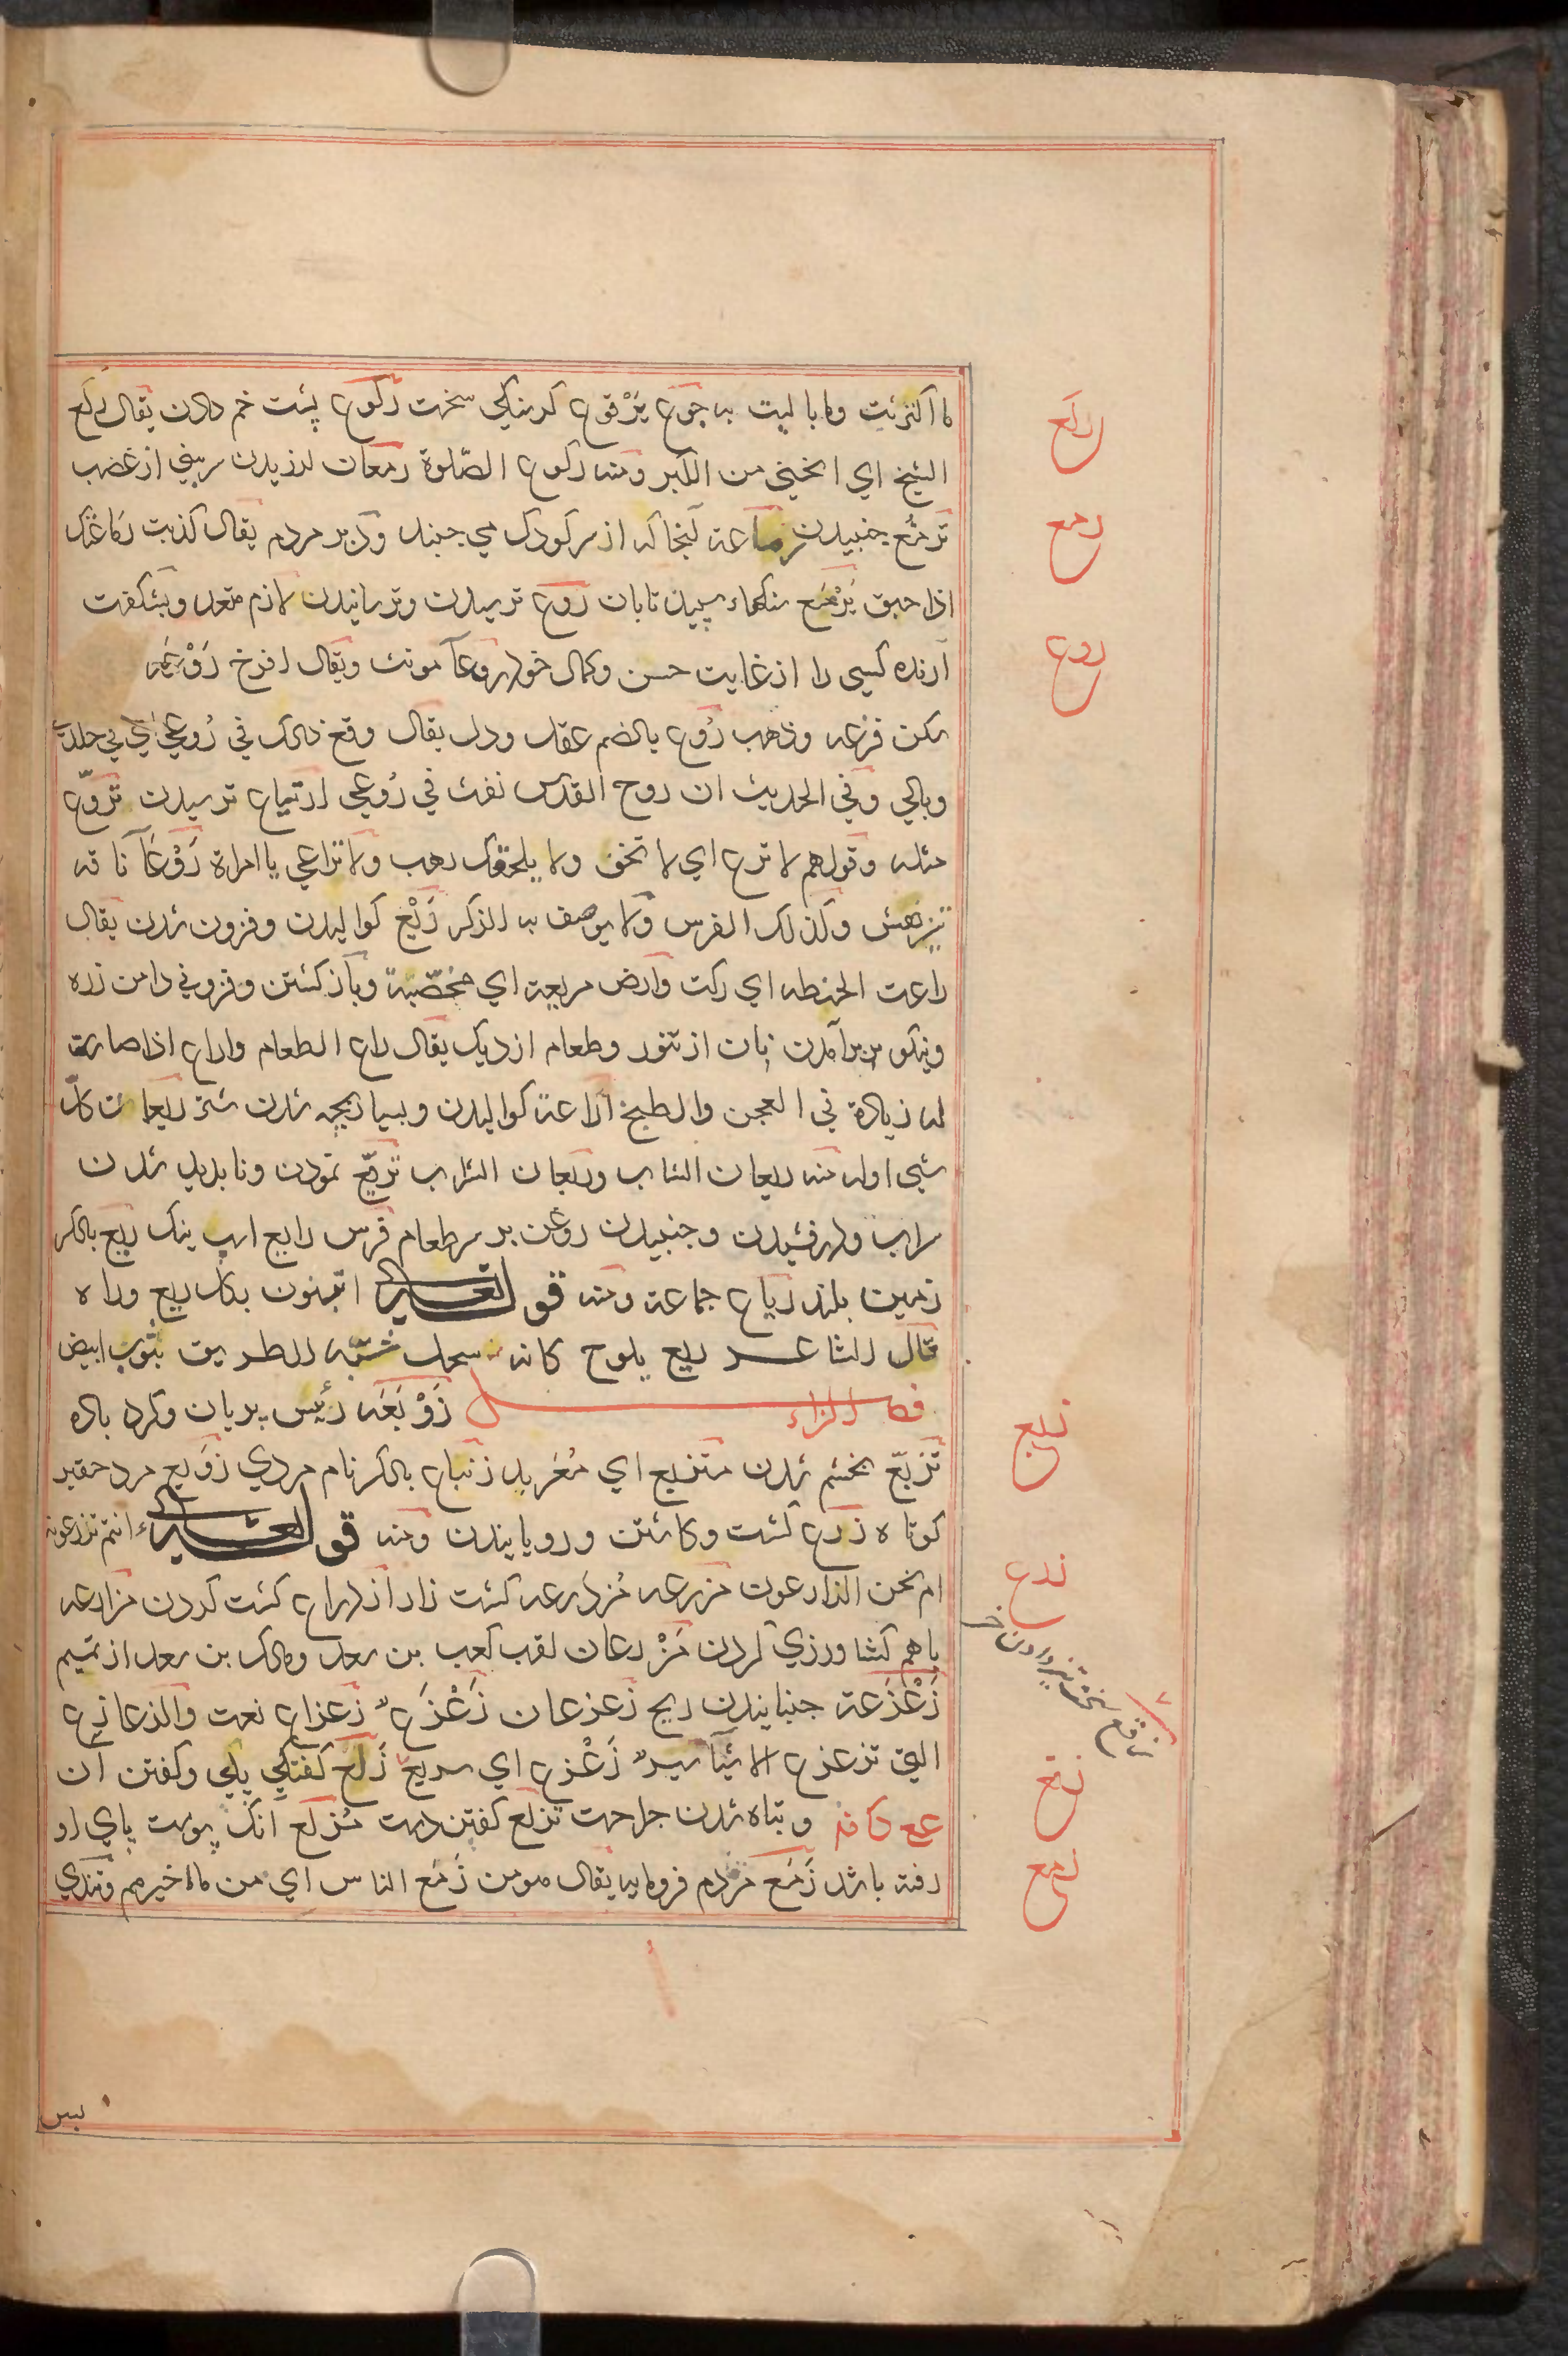 ما اكترثت وما باليت به جوع يَرْقوع كرسنكي سخت ركوع پشت خم دادن يقال ركع
الشيخ اي انحنى من الكبر ومنه ركوع الصّلوة رمعان لرزيدن سر بيني از غضب
ترمّع جنبيدن رماعة آنجا كه از سر كودك مي جنبد ودبر مردم يقال كذبت رماعتك
اذا حبق يَرْمَع سنكهاء سپيد تابان روع ترسيدن وترسانيدن لازم متعد وبشكفت
آرنده كسى را از غايت حسن وكمال خود روعآ مونث ويقال افرخ رَوْعه
سكن فزعه وذهب رُوع بالضم عقل ودل يقال وقع ذلك في رُوعي اي في خلدي
وبالي وفي الحديث ان روح القدس نفث في رُوعي ارتياع ترسيدن تروّع
مثله وقولهم لا ترع اي لا تخف ولا يلحقك رعب ولا تراعي يا امراة رَوْعَآ ناقه
تيزهش وكذلك الفرس ولا يوصف به الذكر رَيْع كواليدن وفزون شدن يقال
راعت الحنطه اي ركت وارض مريعة اي مخصّبة وبازكشتن وفزوني دامن زره
ونيكو بر برآمدن نان از تنور وطعام از ديك يقال راع الطعام واراع اذا صارت
له زيادة في العجن والطبخ اراعة كواليدن وبسيار بچه شدن شتر ريعان كل
شي اوله منه ريعان الشاب وريعان الشراب تريّع نمودن ونابديد شدن
سراب ودرفشيدن وجنبيدن روغن بر سر طعام فرس رايع اسپ نيك ريع بالكسر
زمين بلند رياع جماعة ومنه قوله تعالى اتبنون بكل ريع وراه
قال الشاعر ريع يلوح كانه سحل شبّه الطريق بثوب ابيض
فصل الزاء زَوْبَعَه رئيس پريان وكرد باد
تزبّع بخشم شدن متزبع اي مُعَربد زنباع بالكسر نام مردي زَوبع مرد حقير
كوتاه زرع كشت وكاشتن وروياندن ومنه قوله تعالى ءانتم تزرعونه
ام نحن الزارعون مزرعه مُزدرعه كشت زار ازدراع كشت كردن مزارعه
باهم كشاورزي كردن مَزْروعان لقب كعب بن سعد ومالك بن سعد از تميم
زَعْزَعة جنبانيدن ريح زعزعان زَعْزَع زعزاع نعت والزعازع
التي تزعزع الاشيآ سيرٌ زَعْزع اي سريع زَلَع كفتكي پاي وكفتن آن
عع كافته وتباه شدن جراحت تزلع كفتن دست مُزلّع آنك پوست پاي او
رفته باشد زَمَع مردم فرومايه يقال هو من زَمَع الناس اي من مآخيرهم وتندي
ركع
رمع
روع
زبع
زرع
زلع
زمع
بس